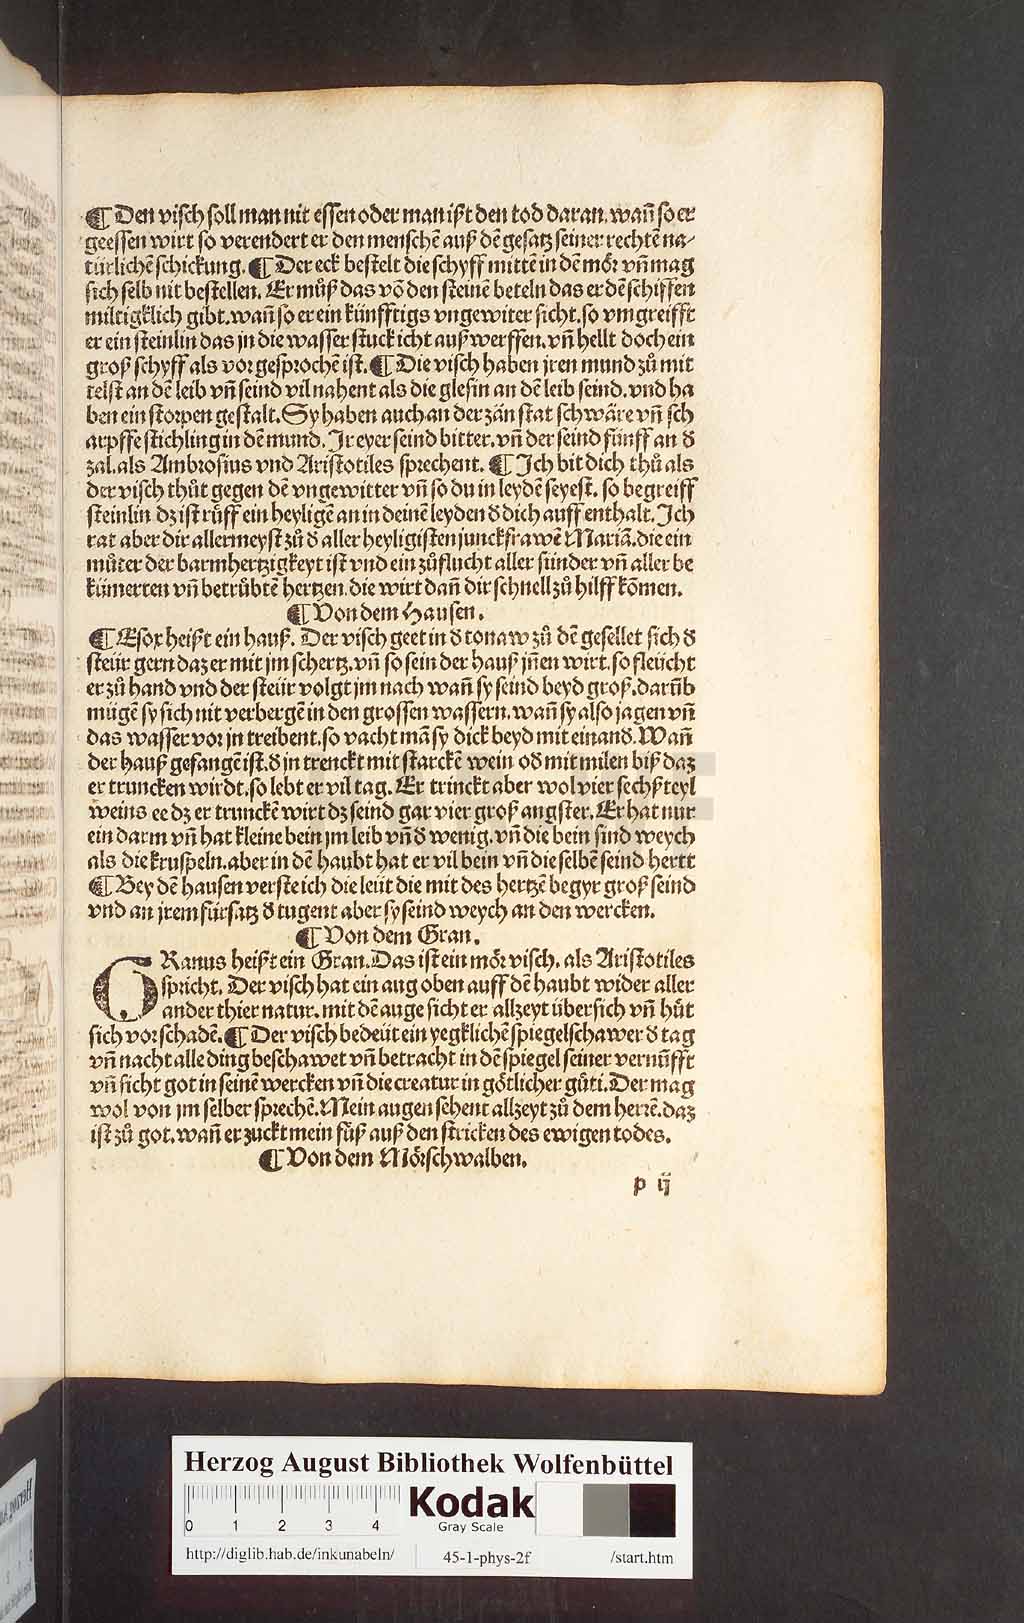 ¶ Den visch soll man nit essen oder man ißt den tod daran. wañ so er
geessen wirt so verendert er den menschẽ auß dẽ gesatz seiner rechtẽ na-
türlichẽ schickung. ¶ Der eck bestelt die schyff mittẽ in dẽ moͤr vñ mag
sich selb nit bestellen. Er muͤß das võ den steinẽ beteln das er dẽ schiffen
miltigklich gibt. wañ so er ein künfftigs vngewiter sicht. so vmgreifft
er ein steinlin das jn die wasser stuck icht auß werffen. vñ hellt doch ein
groß schyff als vor gesprochẽ ist. ¶ Die visch haben jren mund zů mit
telst an dẽ leib vñ seind vil nahent als die glesin an dẽ leib seind. vnd ha
ben ein storpen gestalt. Sy haben auch an der zän stat schwäre vñ sch
arpffe stichling in dẽ mund. Jr eyer seind bitter. vñ der seind fünff an đ
zal. als Ambrosius vnd Aristotiles sprechent. ¶ Jch bit dich thů als
der visch thůt gegen dẽ vngewitter vñ so du in leydẽ seyest. so begreiff
steinlin dz ist růff ein heyligẽ an in deinẽ leyden đ dich auff enthalt. Jch
rat aber dir allermeyst zů đ aller heyligisten junckfrawẽ Mariã. die ein
můter der barmhertzigkeyt ist vnd ein zůflucht aller sünder vñ aller be
kümerten vñ betrůbtẽ hertzen. die wirt dañ dir schnell zů hilff kõmen.
¶ Von dem Hausen.
¶ Esox heißt ein hauß. Der visch geet in đ tonaw zů dẽ gesellet sich đ
steür gern daz er mit jm schertz. vñ so sein der hauß jñen wirt. so fleücht
er zů hand vnd der steür volgt jm nach wañ sy seind beyd groß. darũb
mügẽ sy sich nit verbergẽ in den grossen wassern. wañ sy also jagen vñ
das wasser vor jn treibent. so vacht mã sy dick beyd mit einanđ. Wañ
der hauß gefangẽ ist. đ jn trenckt mit starckẽ wein ođ mit milen biß daz
er truncken wirdt. so lebt er vil tag. Er trinckt aber wol vier sechßteyl
weins ee dz er trunckẽ wirt dz seind gar vier groß angster. Er hat nur
ein darm vñ hat kleine bein jm leib vñ đ wenig. vñ die bein sind weych
als die kruspeln. aber in dẽ haubt hat er vil bein vñ die selbẽ seind hertt
¶ Bey dẽ hausen verste ich die leüt die mit des hertzẽ begyr groß seind
vnd an jrem fürsatz đ tugent aber sy seind weych an den wercken.
¶ Von dem Gran.
GRanus heißt ein Gran. Das ist ein moͤr visch. als Aristotiles
spricht. Der visch hat ein aug oben auff dẽ haubt wider aller
ander thier natur. mit dẽ auge sicht er allzeyt übersich vñ huͤt
sich vor schadẽ. ¶ Der visch bedeüt ein yegklichẽ spiegelschawer đ tag
vñ nacht alle ding beschawet vñ betracht in dẽ spiegel seiner vernũfft
vñ sicht got in seinẽ wercken vñ die creatur in goͤtlicher guͤti. Der mag
wol von jm selber sprechẽ. Mein augen sehent allzeyt zů dem herrẽ. daz
ist zů got. wañ er zuckt mein fuͤß auß den stricken des ewigen todes.
¶ Von dem Moͤrschwalben.
p ij
Herzog August Bibliothek Wolfenbüttel
0 1 2 3 4
Kodak
Gray Scale
http://diglib.hab.de/inkunabeln/
45-1-phys-2f
/start.htm